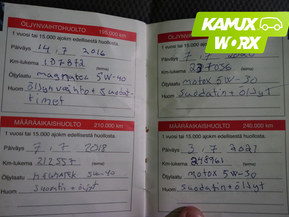 KAMUX
WORX
ÖLJYNVAIHTOHUOLTO 195.000 km
1 vuosi tai 15.000 ajokm edellisestä huollosta.
Päiväys 14.7.2016
Km-lukema 187873
Öljylaatu magnatec 5W-40
Huom Öljynvaihto + suodat-
timet
MÄÄRÄAIKAISHUOLTO 210.000 km
1 vuosi tai 15.000 ajokm edellisestä huollosta.
Päiväys 7.7.2018
Km-lukema 212557
Öljylaatu 5w-40
Huom
1 vuosi tai 15.000 ajokm edellisestä huollosta.
Km-lukema 227056
Öljylaatu motox 5W-30
Huom suodatin + öljyt
MÄÄRÄAIKAISHUOLTO 240.000 km
1 vuosi tai 15.000 ajokm edellisestä huollosta.
Päiväys 3.7.2021
Km-lukema 248961
Öljylaatu motox 5W-30
Huom suodatin + öljyt